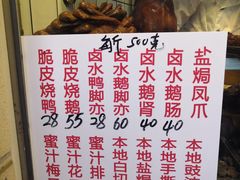 每斤500克
脆皮烧鸭 28
脆皮烧鹅 55
卤水鸭脚亦 28
卤水鹅脚亦 60
卤水鹅肾 40
卤水鹅肠 40
盐焗凤爪
蜜汁梅
蜜汁花
蜜汁排
本地白切
本地盐焗
本地手撕
本地豉油